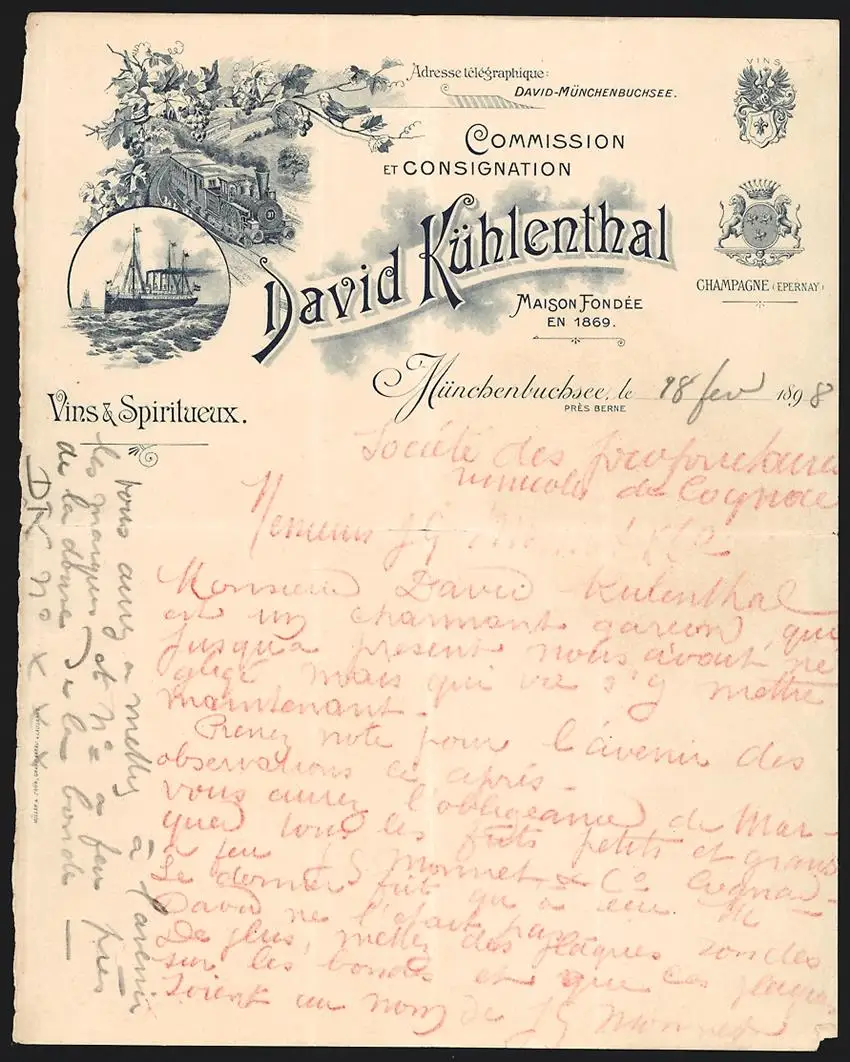 Adresse télégraphique:
DAVID-MÜNCHENBUCHSEE.
VINS
COMMISSION
ET CONSIGNATION
David Kühlenthal
MAISON FONDÉE
EN 1869.
CHAMPAGNE (EPERNAY)
Vins & Spiritueux.
Münchenbuchsee, le 18 fev 1898
PRÈS BERNE
Société des proprietaires
vinicoles de Cognac
Messieurs J G
Monsieur David Kulenthal
est un charmant garcon, qui
jusqu'a present nous avait né
gligé mais qui va s'y mettre
maintenant.
Prenez note pour l'avenir des
observations ci après.
vous aurez l'obligeance de Mar-
quer tous les futs petits et grands
a feu J G Monnet & Co Cognac-
Le dernier fut qu'a eu M
David ne l'etait pas.
De plus, mettez des plaques rondes
sur les bondes et que ces plaques
soient au nom de J G Monnet
vous aurez a mettre à l'avenir
les marques et No a feu près
de la bonde
DK No X X X